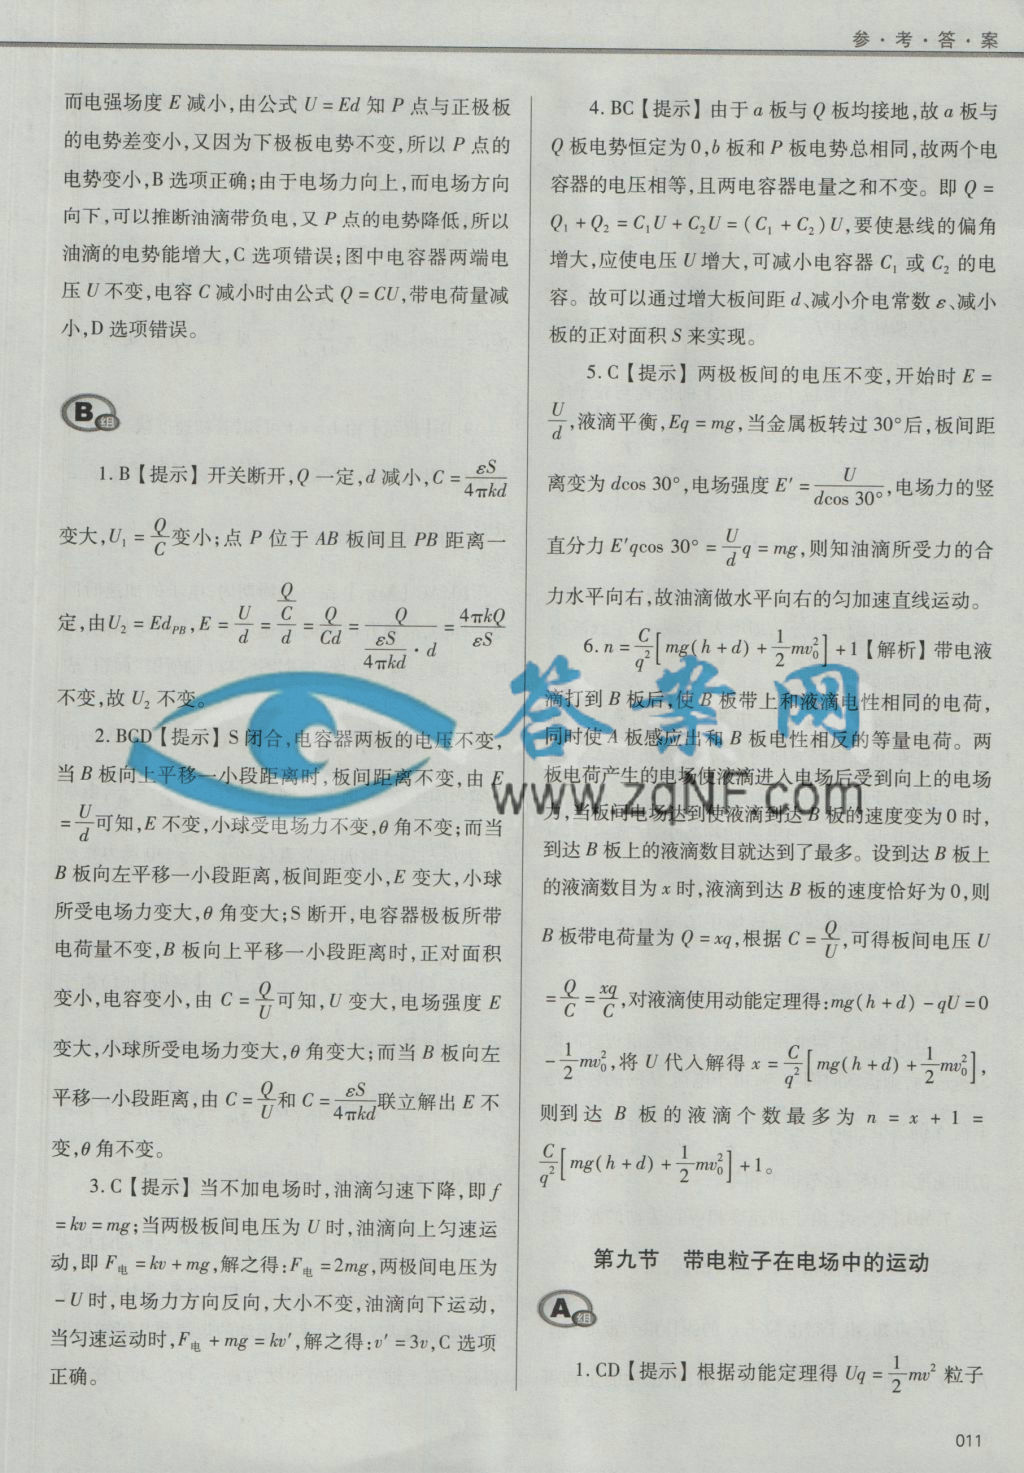 参·考·答·案
而电强场度 E 减小,由公式 U = Ed 知 P 点与正极板
的电势差变小,又因为下极板电势不变,所以 P 点的
电势变小,B 选项正确;由于电场力向上,而电场方向
向下,可以推断油滴带负电,又 P 点的电势降低,所以
油滴的电势能增大,C 选项错误;图中电容器两端电
压 U 不变,电容 C 减小时由公式 Q = CU,带电荷量减
小,D 选项错误。
B组
1. B【提示】开关断开,Q 一定,d 减小,C = εS/4πkd
变大,U₁ = Q/C 变小;点 P 位于 AB 板间且 PB 距离一
定,由U₂ = Ed_PB,E = U/d = (Q/C)/d = Q/Cd = Q/(εS/4πkd · d) = 4πkQ/εS
不变,故 U₂ 不变。
2. BCD【提示】S 闭合,电容器两板的电压不变,
当 B 板向上平移一小段距离时,板间距离不变,由 E
= U/d 可知,E 不变,小球受电场力不变,θ 角不变;而当
B 板向左平移一小段距离,板间距变小,E 变大,小球
所受电场力变大,θ 角变大;S 断开,电容器极板所带
电荷量不变,B 板向上平移一小段距离时,正对面积
变小,电容变小,由 C = Q/U 可知,U 变大,电场强度 E
变大,小球所受电场力变大,θ 角变大;而当 B 板向左
平移一小段距离,由 C = Q/U 和 C = εS/4πkd 联立解出 E 不
变,θ 角不变。
3. C【提示】当不加电场时,油滴匀速下降,即 f
= kv = mg;当两极板间电压为 U 时,油滴向上匀速运
动,即 F电 = kv + mg,解之得:F电 = 2mg,两极间电压为
- U 时,电场力方向反向,大小不变,油滴向下运动,
当匀速运动时,F电 + mg = kv′,解之得:v′ = 3v,C 选项
正确。
4. BC【提示】由于 a 板与 Q 板均接地,故 a 板与
Q 板电势恒定为 0,b 板和 P 板电势总相同,故两个电
容器的电压相等,且两电容器电量之和不变。即 Q =
Q₁ + Q₂ = C₁U + C₂U = (C₁ + C₂)U,要使悬线的偏角
增大,应使电压 U 增大,可减小电容器 C₁ 或 C₂ 的电
容。故可以通过增大板间距 d、减小介电常数 ε、减小
板的正对面积 S 来实现。
5. C【提示】两极板间的电压不变,开始时 E =
U/d,液滴平衡,Eq = mg,当金属板转过 30°后,板间距
离变为 dcos 30°,电场强度 E′ = U/dcos 30°,电场力的竖
直分力 E′qcos 30° = U/d q = mg,则知油滴所受力的合
力水平向右,故油滴做水平向右的匀加速直线运动。
6. n = C/q²[mg(h + d) + 1/2 mv₀²] + 1【解析】带电液
滴打到 B 板后,使 B 板带上和液滴电性相同的电荷,
同时使 A 板感应出和 B 板电性相反的等量电荷。两
板电荷产生的电场使液滴进入电场后受到向上的电场
力,当板间电场达到使液滴到达 B 板的速度变为 0 时,
到达 B 板上的液滴数目就达到了最多。设到达 B 板上
的液滴数目为 x 时,液滴到达 B 板的速度恰好为 0,则
B 板带电荷量为 Q = xq,根据 C = Q/U,可得板间电压 U
= Q/C = xq/C,对液滴使用动能定理得:mg(h + d) - qU = 0
- 1/2 mv₀²,将 U 代入解得 x = C/q²[mg(h + d) + 1/2 mv₀²],
则到达 B 板的液滴个数最多为 n = x + 1 =
C/q²[mg(h + d) + 1/2 mv₀²] + 1。
第九节 带电粒子在电场中的运动
A组
1. CD【提示】根据动能定理得 Uq = 1/2 mv² 粒子
011
答案网
www.zqNF.com